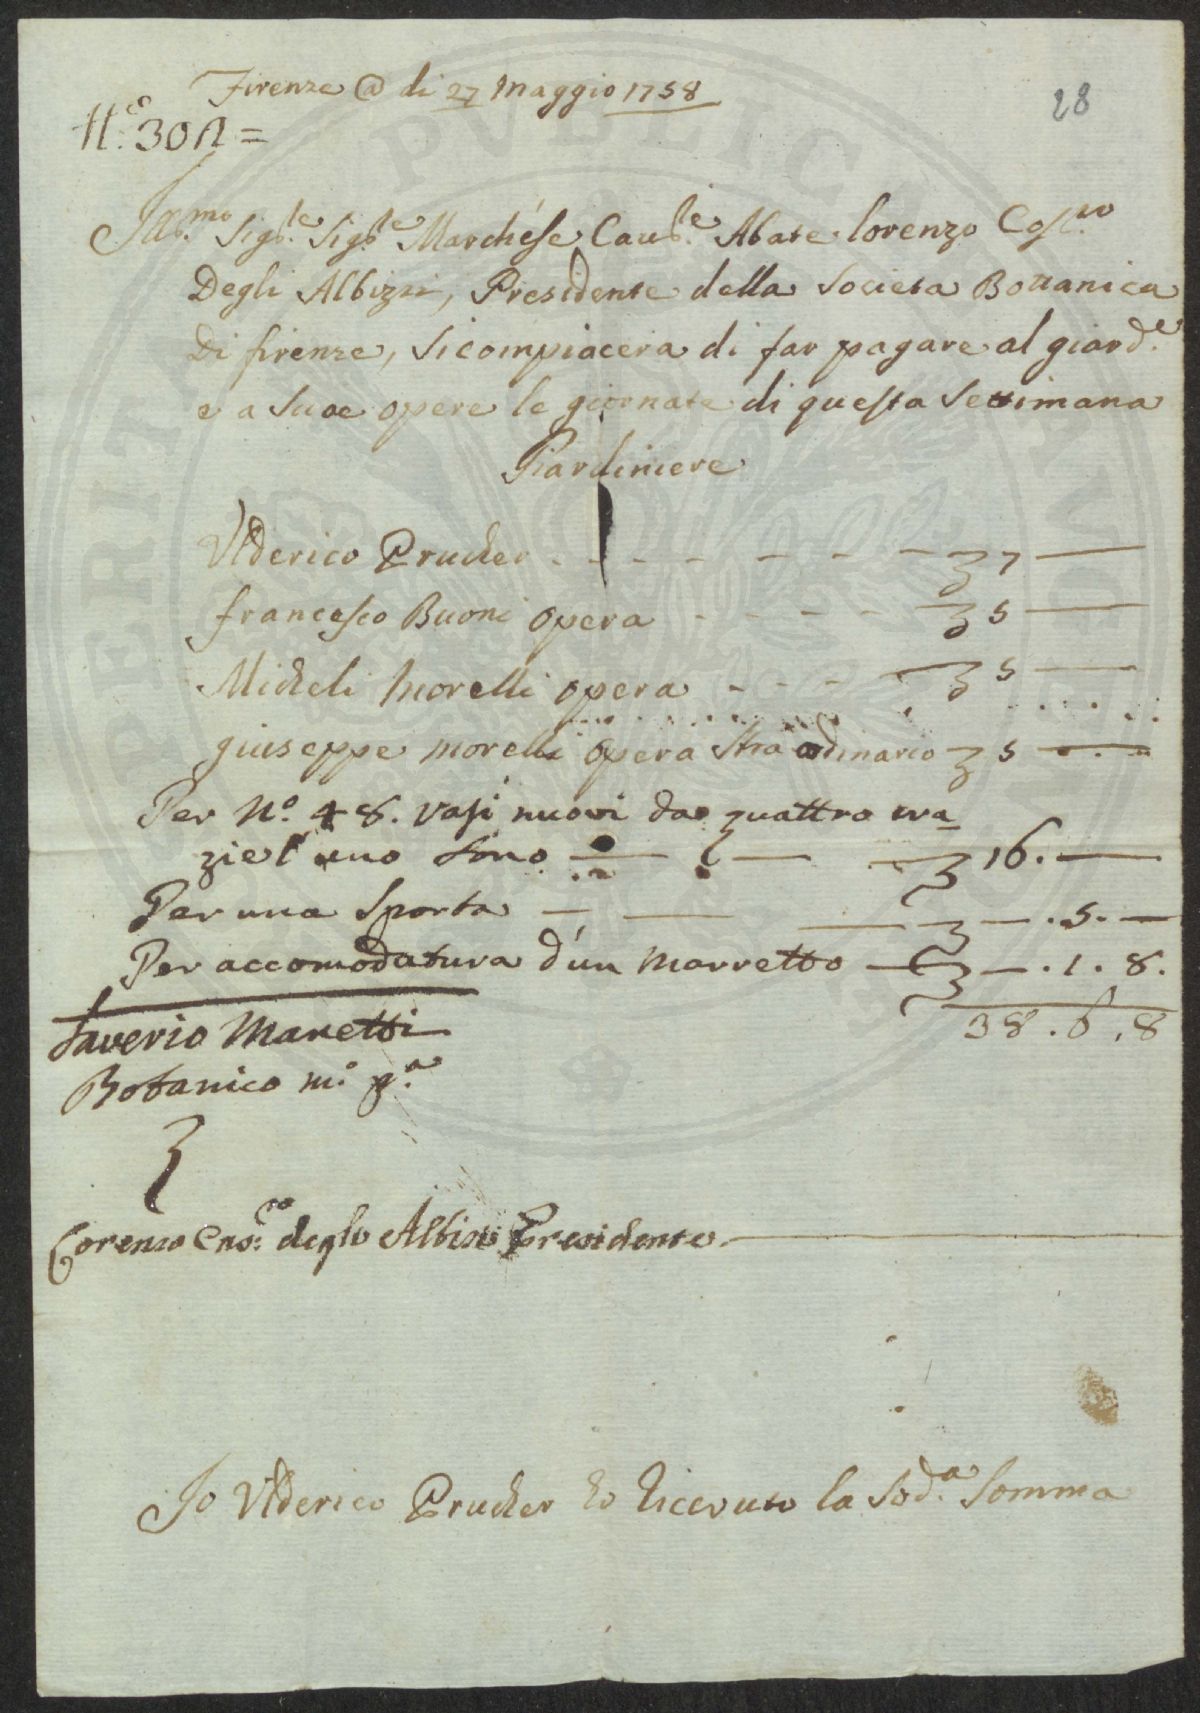 Firenze @ di 27 Maggio 1758
28
Ill.mo Sig.re Sig.re Marchese Cau.re Abate lorenzo
Degli Albizzi, Presidente della Societa Bottanica
Di firenze, Si compiacera di far pagare al giard.e
e a Suoe opere le giornate di questa Settimana
Giardiniere
Vlderico Prucker 7
francesco Buoni opera 5
Micheli Morelli opera 5
giuseppe morelli opera Straodinario 5
Per N.o 48. vasi nuovi da quattro cra
zie l'uno Sono 16.
Per una Sporta .5.
Per accomodatura d'un Marretto .1.8.
38.6.8
Saverio Manetti
Botanico m.o p.a
Lorenzo degli Albizi Presidente
Io Vlderico Prucker ho Ricevuto la Sod.a Somma
PVBLICAE